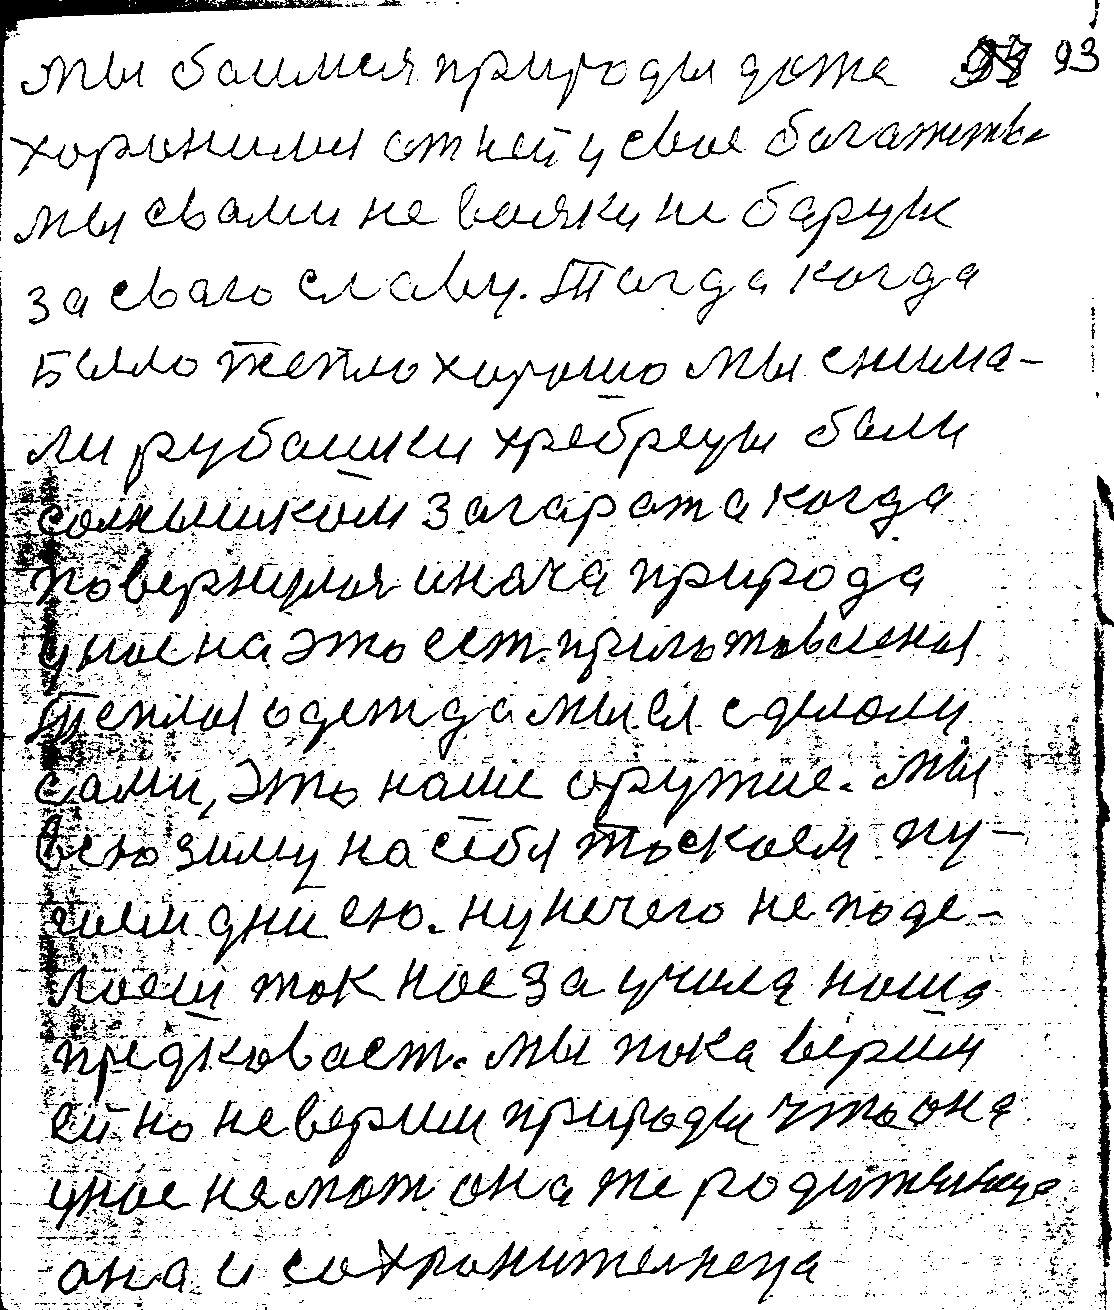 мы боимся природы даже 93
хоронимся от ней у свое богатства
мы свами не вояки не барцы
за сваю славу. Тогда когда
было тепло хорошо мы снима-
ли рубашки хребрецы были
солнышком загарата когда
повернулся иначе природа
унас на это ест. приготовлена
Теплая одежда мы ея сделали
сами, это наше оружие. Мы
всю зиму на себя тоскаем
сыем дни ею. ну нечего не поде-
лаеш так нас заучила наша
предковаст. мы пока верим
ей но неверим природы что она
унас нямат она же родительница
она и сохронителнеца